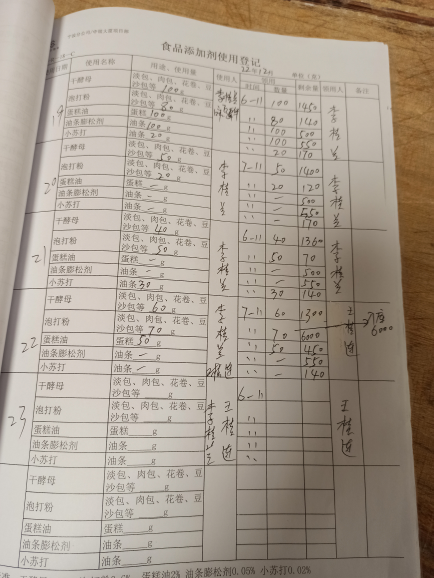 食品添加剂使用登记
22年12月 单位（克）
使用名称 用途、使用量 使用人 领用 剩余量 领用人 备注
时间 数量
19
干酵母 淡包、肉包、花卷、豆沙包等 100 g 6-11 100 1450
泡打粉 淡包、肉包、花卷、豆沙包等 80 g 80 140
蛋糕油 蛋糕 100 g 100 500
油条膨松剂 油条 100 g 100 550
小苏打 油条 20 g 20 170
20
干酵母 淡包、肉包、花卷、豆沙包等 50 g 李桂兰 7-11 50 1400 李桂兰
泡打粉 淡包、肉包、花卷、豆沙包等 20 g 20 120
蛋糕油 蛋糕 — g — 500
油条膨松剂 油条 — g — 550
小苏打 油条 — g — 170
21
干酵母 淡包、肉包、花卷、豆沙包等 40 g 李桂兰 6-11 40 1360 李桂兰
泡打粉 淡包、肉包、花卷、豆沙包等 50 g 50 70
蛋糕油 蛋糕 — g — 500
油条膨松剂 油条 — g — 550
小苏打 油条 30 g 30 140
22
干酵母 淡包、肉包、花卷、豆沙包等 60 g 李桂兰 7-11 60 1300 王桂莲
泡打粉 淡包、肉包、花卷、豆沙包等 70 g 70 6000 6000
蛋糕油 蛋糕 50 g 50 450
油条膨松剂 油条 — g — 550
小苏打 油条 — g 王桂莲 — 140
23
干酵母 淡包、肉包、花卷、豆沙包等 g 李桂兰 王桂莲 6-11 王桂莲
泡打粉 淡包、肉包、花卷、豆沙包等 g
蛋糕油 蛋糕 g
油条膨松剂 油条 g
小苏打 油条 g
干酵母 淡包、肉包、花卷、豆沙包等 g
泡打粉 淡包、肉包、花卷、豆沙包等 g
蛋糕油 蛋糕 g
油条膨松剂 油条 g
小苏打 油条 g
蛋糕油2% 油条膨松剂0.05% 小苏打0.02%